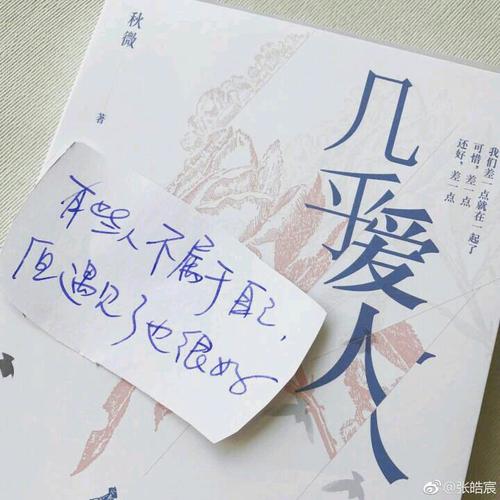 秋微
著
几乎爱人
我们差一点就在一起了
可惜，差一点
还好，差一点
有些人不属于自己，
但遇见了也很好
@张皓宸